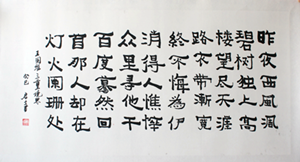 昨夜西風凋
碧樹獨上高
樓望尽天涯
路衣帶漸寬
終不悔為伊
消得人憔悴
眾里尋他千
百度驀然回
首那人却在
灯火闌珊處
王國維三重境界